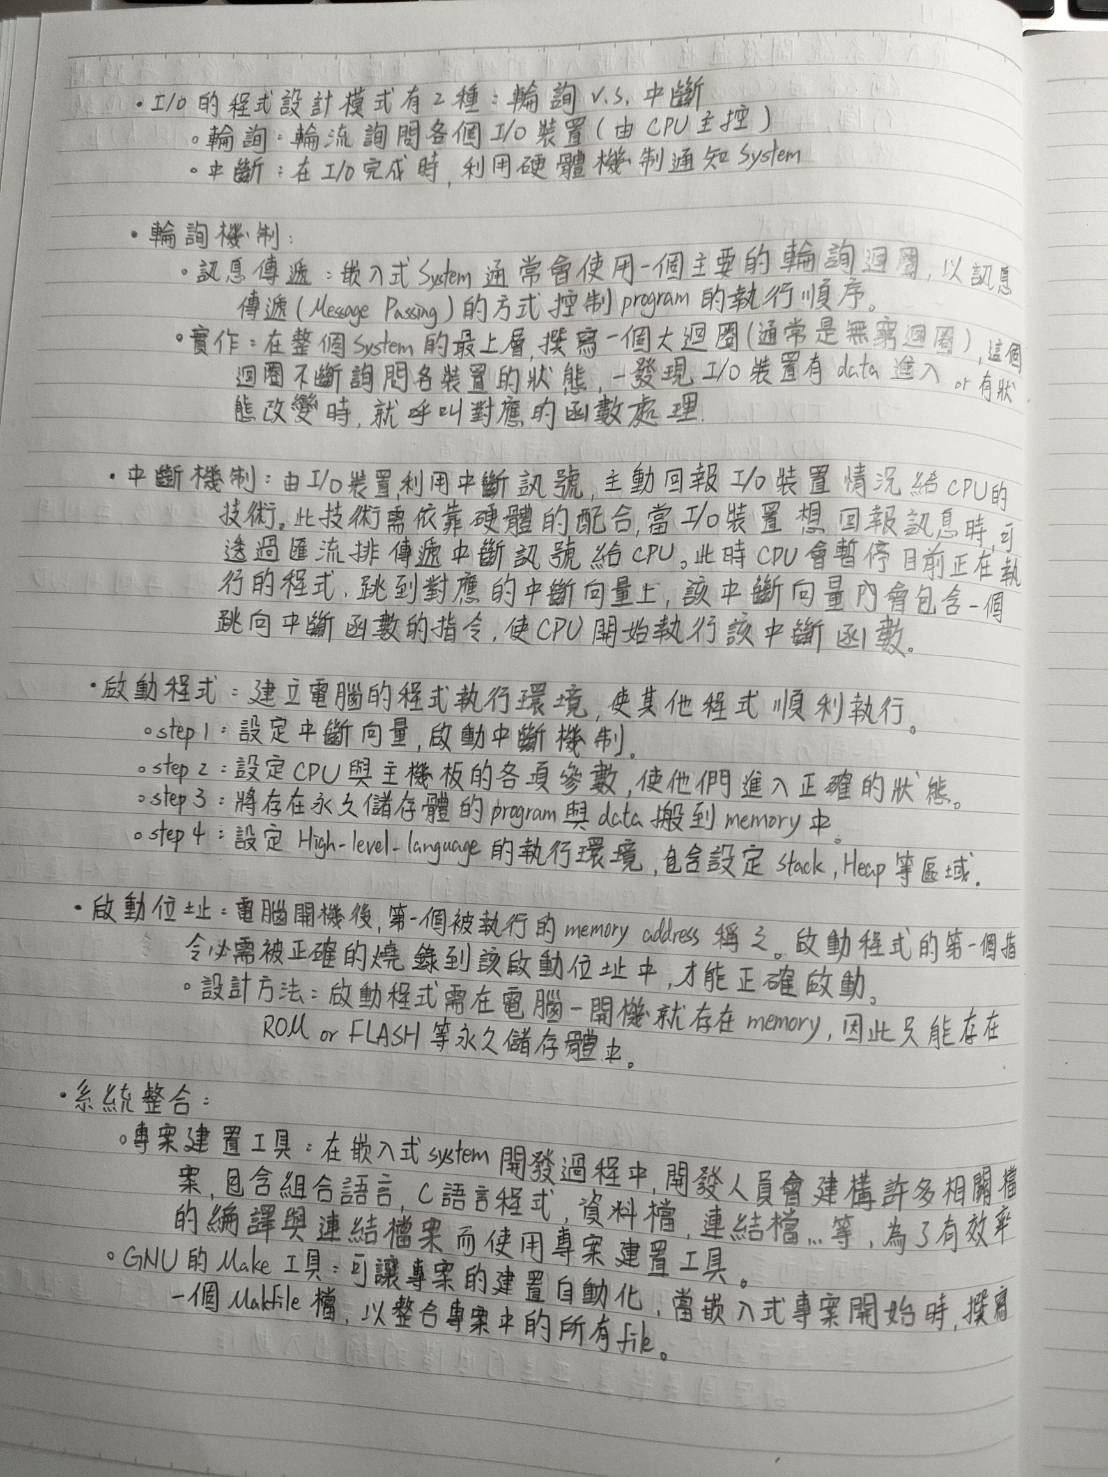 ・I/O 的程式設計模式有2種：輪詢 v.s. 中斷
。輪詢：輪流詢問各個 I/O 裝置(由 CPU 主控)
。中斷：在 I/O 完成時，利用硬體機制通知 System
・輪詢機制：
。訊息傳遞：嵌入式 System 通常會使用一個主要的輪詢迴圈，以訊息
傳遞(Message Passing)的方式控制 program 的執行順序。
。實作：在整個 System 的最上層，撰寫一個大迴圈(通常是無窮迴圈)，這個
迴圈不斷詢問各裝置的狀態，一發現 I/O 裝置有 data 進入 or 有狀
態改變時，就呼叫對應的函數處理.
・中斷機制：由 I/O 裝置，利用中斷訊號，主動回報 I/O 裝置情況給 CPU 的
技術。此技術需依靠硬體的配合，當 I/O 裝置想回報訊息時，可
透過匯流排傳遞中斷訊號給 CPU。此時 CPU 會暫停目前正在執
行的程式，跳到對應的中斷向量上，該中斷向量內會包含一個
跳向中斷函數的指令，使 CPU 開始執行該中斷函數。
・啟動程式：建立電腦的程式執行環境，使其他程式順利執行。
。step 1：設定中斷向量，啟動中斷機制。
。step 2：設定 CPU 與主機板的各項參數，使他們進入正確的狀態。
。step 3：將存在永久儲存體的 program 與 data 搬到 memory 中。
。step 4：設定 High-level-language 的執行環境，包含設定 stack, Heap 等區域.
・啟動位址：電腦開機後，第一個被執行的 memory address 稱之。啟動程式的第一個指
令必需被正確的燒錄到該啟動位址中，才能正確啟動。
。設計方法：啟動程式需在電腦一開機就存在 memory，因此只能存在
ROM or FLASH 等永久儲存體中。
・系統整合：
。專案建置工具：在嵌入式 system 開發過程中，開發人員會建構許多相關檔
案，包含組合語言，C 語言程式，資料檔，連結檔...等，為了有效率
的編譯與連結檔案而使用專案建置工具。
。GNU 的 Make 工具：可讓專案的建置自動化，當嵌入式專案開始時，撰寫
一個 Makfile 檔，以整合專案中的所有 file。